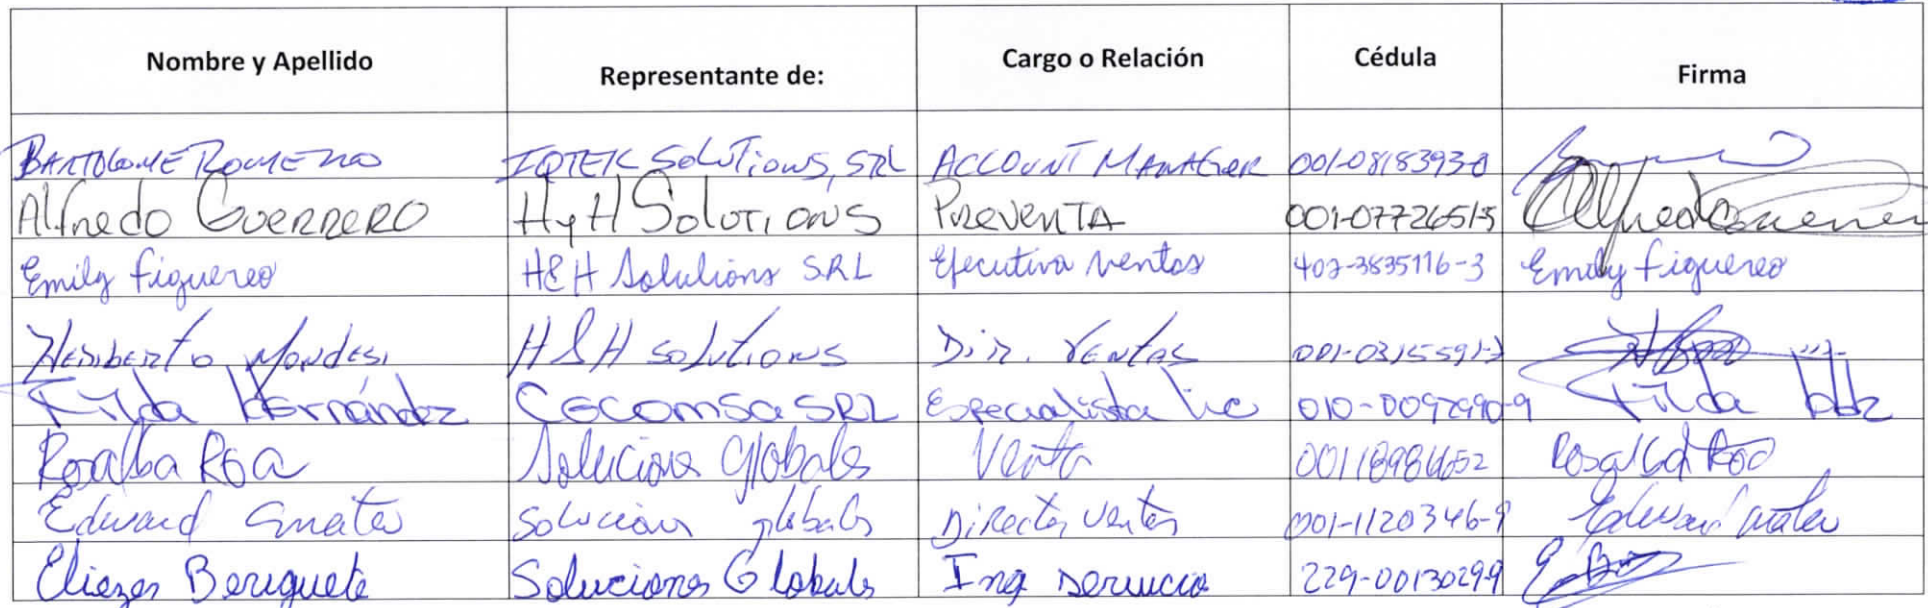 Nombre y Apellido Representante de: Cargo o Relación Cédula Firma
BARTOLOME ROMERO IQTEK SOLUTIONS, SRL ACCOUNT MANAGER 001-0818393-8
Alfredo GUERRERO HyH SOLUTIONS PREVENTA 001-0772651-5 Alfredo Guerrero
Emily Figuereo H&H Solutions SRL Ejecutiva ventas 402-3835116-3 Emily Figuereo
Heriberto Mondesi H&H solutions Dir. Ventas
Tilda Hernández Cecomsa SRL Especialista Lic 010-0097990-9 Tilda Hdz
Rosalba Roa Soluciones Globales Venta Rosalba Roa
Edward Soluciones globales Director Ventas 001-1120346-9 Edward
Eliezer Beriguete Soluciones Globales Ing Servicio 229-0013029-9